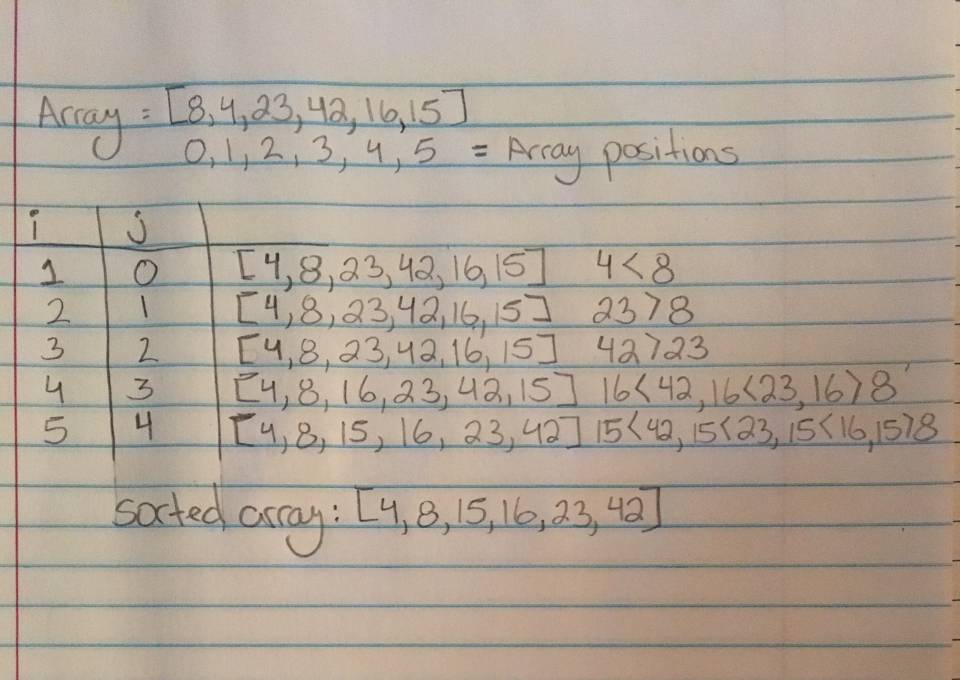 Array = [8,4,23,42,16,15]
0,1,2,3,4,5 = Array positions
i j
1 0 [4,8,23,42,16,15] 4<8
2 1 [4,8,23,42,16,15] 23>8
3 2 [4,8,23,42,16,15] 42>23
4 3 [4,8,16,23,42,15] 16<42,16<23,16>8
5 4 [4,8,15,16,23,42] 15<42,15<23,15<16,15>8
sorted array: [4,8,15,16,23,42]